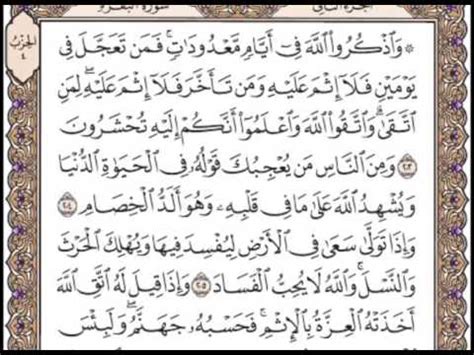 الجزء الثاني
سورة البقرة
الحزب
٤
۞ وَاذْكُرُوا اللَّهَ فِي أَيَّامٍ مَعْدُودَاتٍ ۚ فَمَنْ تَعَجَّلَ فِي
يَوْمَيْنِ فَلَا إِثْمَ عَلَيْهِ وَمَنْ تَأَخَّرَ فَلَا إِثْمَ عَلَيْهِ ۚ لِمَنِ
اتَّقَىٰ ۗ وَاتَّقُوا اللَّهَ وَاعْلَمُوا أَنَّكُمْ إِلَيْهِ تُحْشَرُونَ
٢٠٣ وَمِنَ النَّاسِ مَنْ يُعْجِبُكَ قَوْلُهُ فِي الْحَيَوٰةِ الدُّنْيَا
وَيُشْهِدُ اللَّهَ عَلَىٰ مَا فِي قَلْبِهِ وَهُوَ أَلَدُّ الْخِصَامِ ٢٠٤
وَإِذَا تَوَلَّىٰ سَعَىٰ فِي الْأَرْضِ لِيُفْسِدَ فِيهَا وَيُهْلِكَ الْحَرْثَ
وَالنَّسْلَ ۗ وَاللَّهُ لَا يُحِبُّ الْفَسَادَ ٢٠٥ وَإِذَا قِيلَ لَهُ اتَّقِ اللَّهَ
أَخَذَتْهُ الْعِزَّةُ بِالْإِثْمِ ۚ فَحَسْبُهُ جَهَنَّمُ ۚ وَلَبِئْسَ